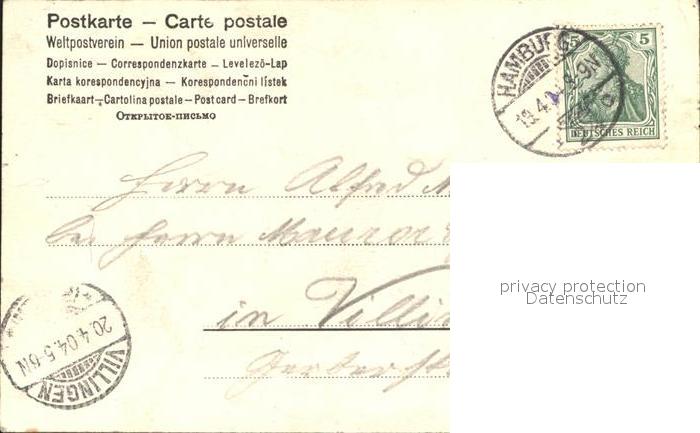 Postkarte — Carte postale
Weltpostverein — Union postale universelle
Dopisnice — Correspondenzkarte — Levelező-Lap
Karta korespondencyjna — Korespondenční lístek
Briefkaart — Cartolina postale — Post card — Brefkort
Открытое-письмо
HAMBURG
19.4.
5 5
DEUTSCHES REICH
Herrn Alfred
Herrn
in Villin
privacy protection
Datenschutz
20.4.04.5-6N
VILLINGEN